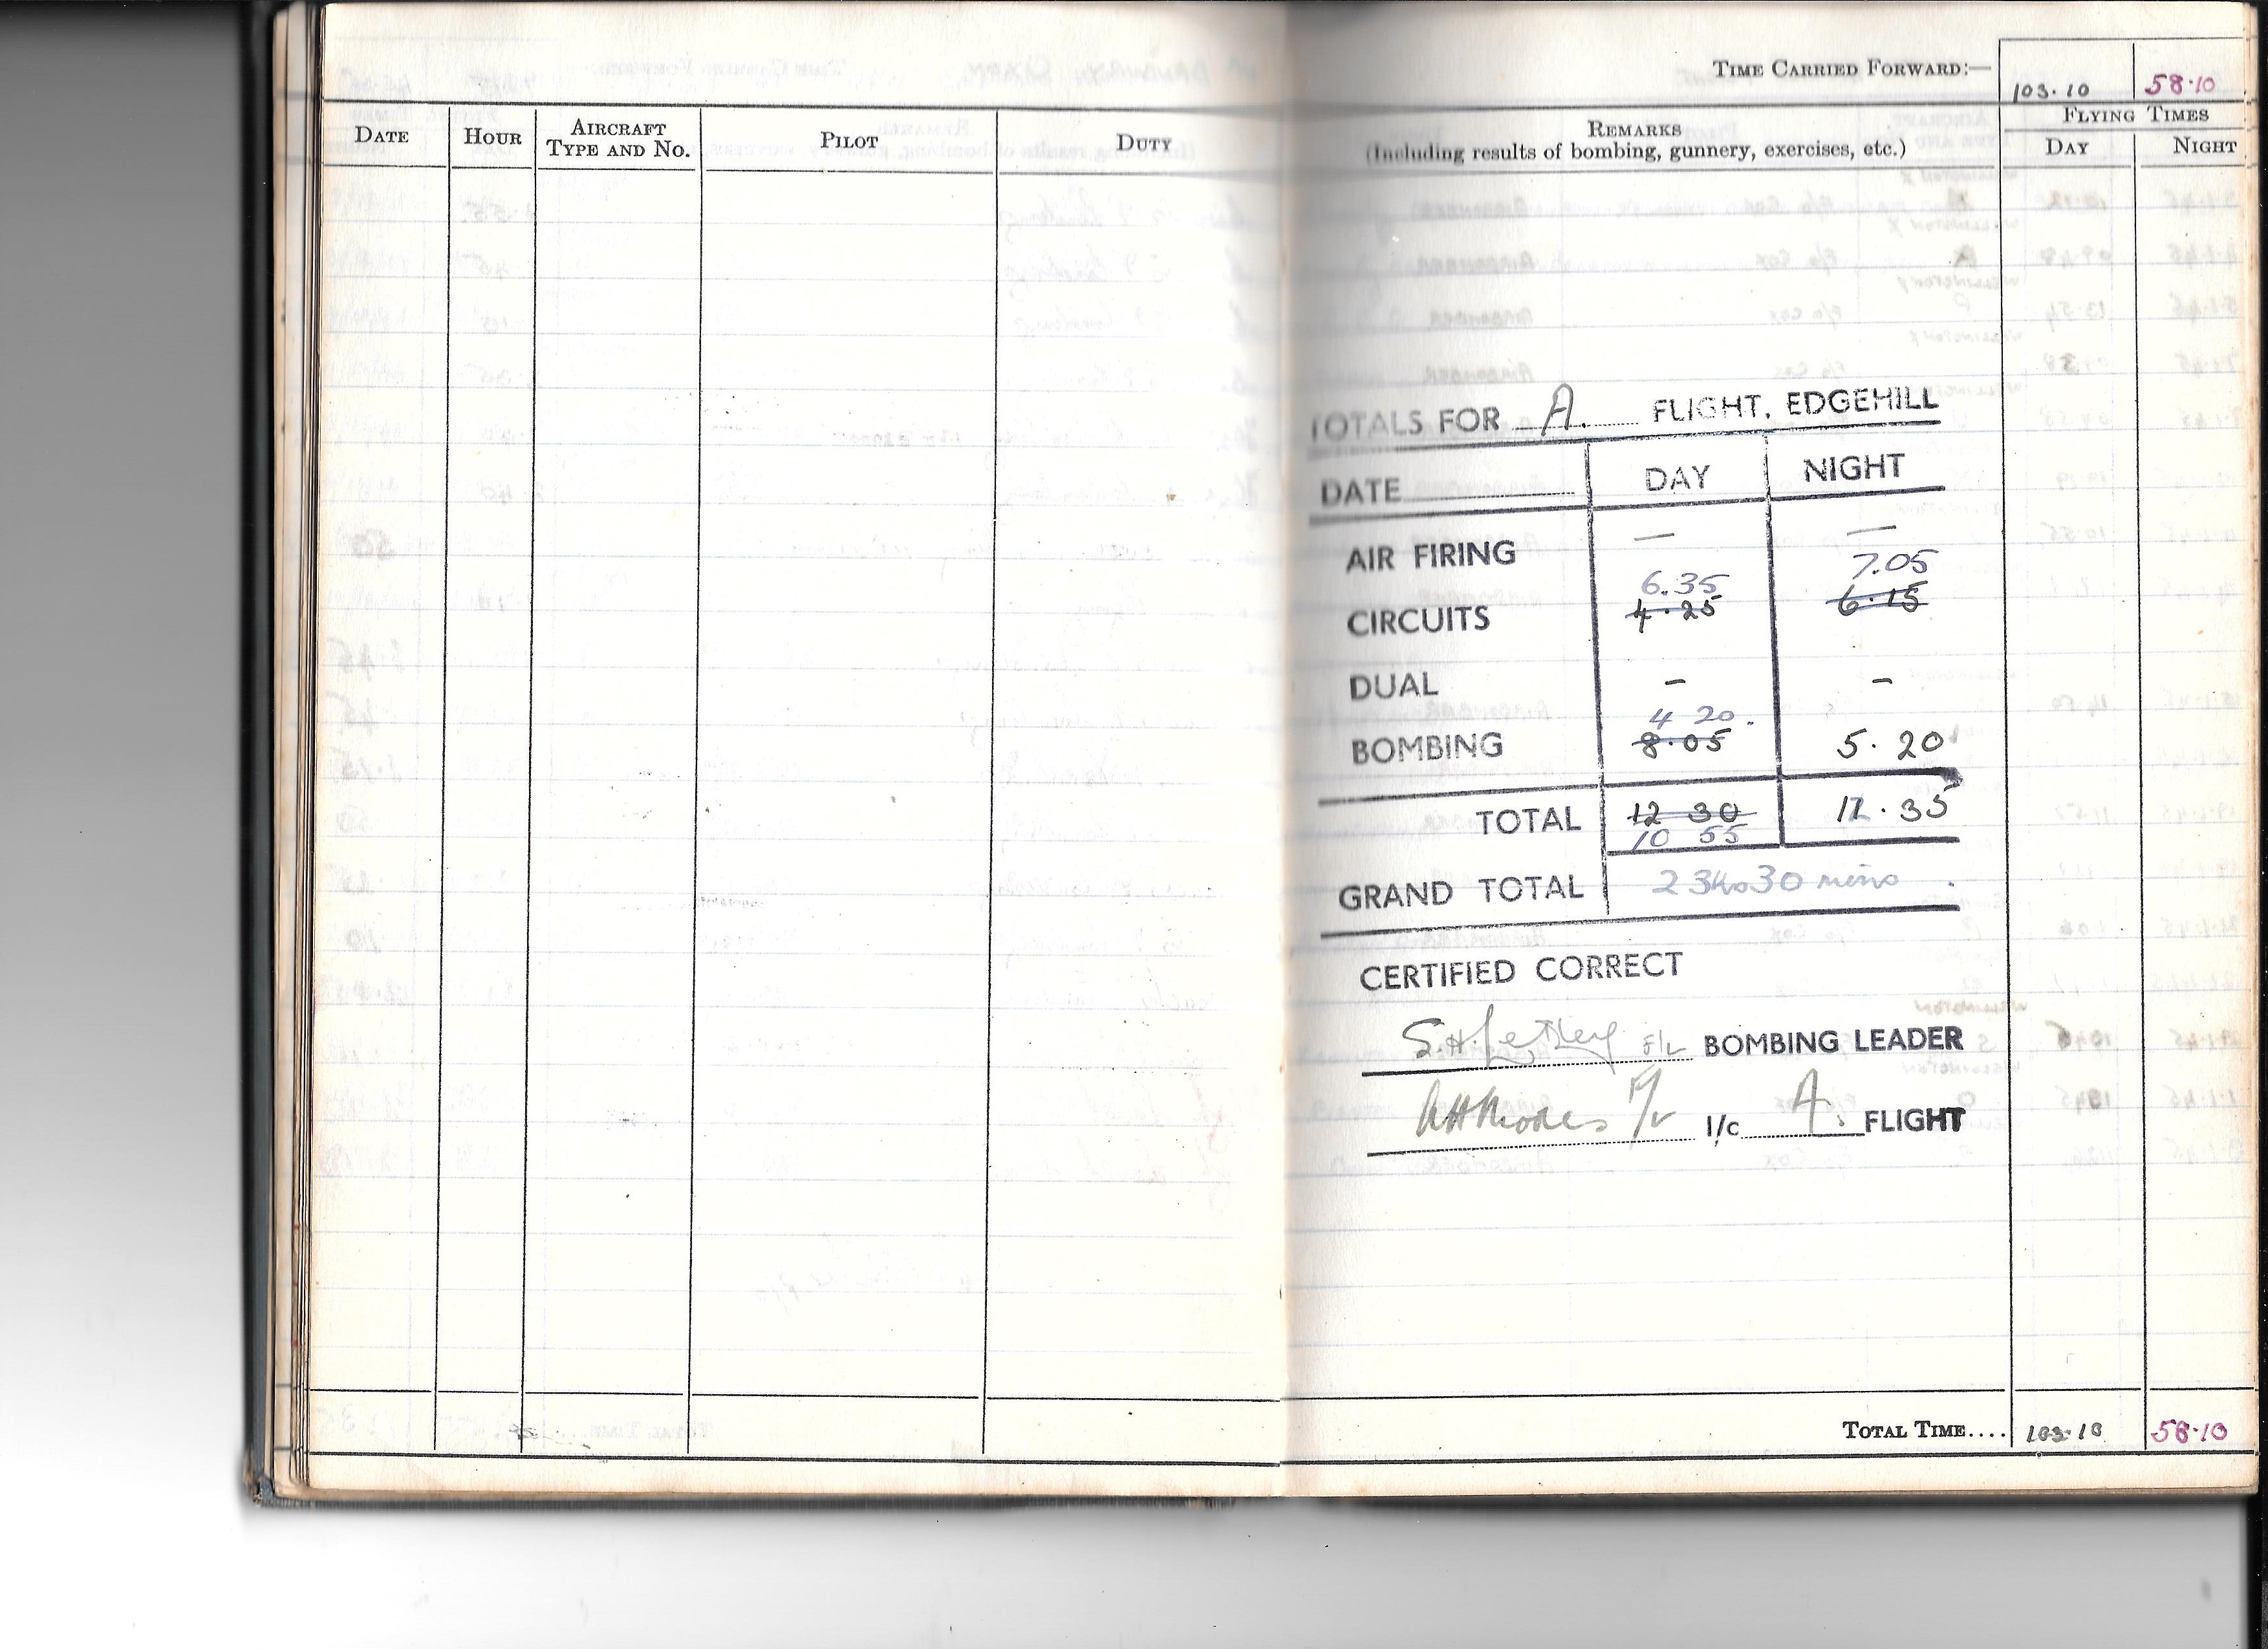 TIME CARRIED FORWARD:— 103.10 58.10
DATE HOUR AIRCRAFT TYPE AND No. PILOT DUTY
REMARKS
(Including results of bombing, gunnery, exercises, etc.)
FLYING TIMES
DAY NIGHT
TOTALS FOR A. FLIGHT, EDGEHILL
DATE DAY NIGHT
AIR FIRING — —
6.35 7.05
CIRCUITS 4.25 6.15
DUAL - -
4 20.
BOMBING 8.05 5.20
TOTAL 12 30 12.35
10 55
GRAND TOTAL 23 30 mins.
CERTIFIED CORRECT
S.H. F/L BOMBING LEADER
F/L I/c A. FLIGHT
TOTAL TIME.... 103.10 58.10